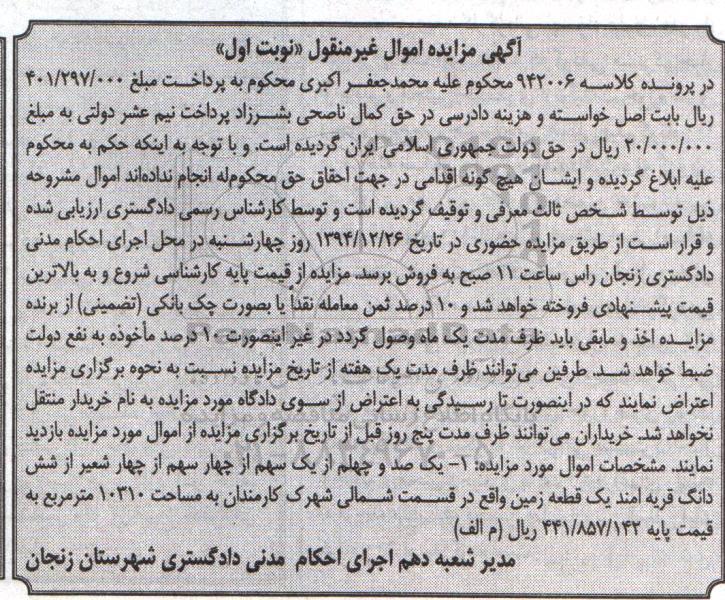 آگهی مزایده اموال غیرمنقول «نوبت اول»
در پرونده کلاسه ۹۴۲۰۰۶ محکوم علیه محمدجعفر اکبری محکوم به پرداخت مبلغ ۴۰۱/۲۹۷/۰۰۰
ریال بابت اصل خواسته و هزینه دادرسی در حق کمال ناصحی بشرزاد پرداخت نیم عشر دولتی به مبلغ
۲۰/۰۰۰/۰۰۰ ریال در حق دولت جمهوری اسلامی ایران گردیده است. و با توجه به اینکه حکم به محکوم
علیه ابلاغ گردیده و ایشان هیچ گونه اقدامی در جهت احقاق حق محکوم‌له انجام نداده‌اند اموال مشروحه
ذیل توسط شخص ثالث معرفی و توقیف گردیده است و توسط کارشناس رسمی دادگستری ارزیابی شده
و قرار است از طریق مزایده حضوری در تاریخ ۱۳۹۴/۱۲/۲۶ روز چهارشنبه در محل اجرای احکام مدنی
دادگستری زنجان راس ساعت ۱۱ صبح به فروش برسد. مزایده از قیمت پایه کارشناسی شروع و به بالاترین
قیمت پیشنهادی فروخته خواهد شد و ۱۰ درصد ثمن معامله نقداً یا بصورت چک بانکی (تضمینی) از برنده
مزایده اخذ و مابقی باید ظرف مدت یک ماه وصول گردد در غیر اینصورت ۱۰ درصد مأخوذه به نفع دولت
ضبط خواهد شد. طرفین می‌توانند ظرف مدت یک هفته از تاریخ مزایده نسبت به نحوه برگزاری مزایده
اعتراض نمایند که در اینصورت تا رسیدگی به اعتراض از سوی دادگاه مورد مزایده به نام خریدار منتقل
نخواهد شد. خریداران می‌توانند ظرف مدت پنج روز قبل از تاریخ برگزاری مزایده از اموال مورد مزایده بازدید
نمایند. مشخصات اموال مورد مزایده: ۱- یک صد و چهلم از یک سهم از چهار سهم از چهار شعیر از شش
دانگ قریه امند یک قطعه زمین واقع در قسمت شمالی شهرک کارمندان به مساحت ۱۰۳۱۰ مترمربع به
قیمت پایه ۴۴۱/۸۵۷/۱۴۲ ریال (م الف)
مدیر شعبه دهم اجرای احکام مدنی دادگستری شهرستان زنجان